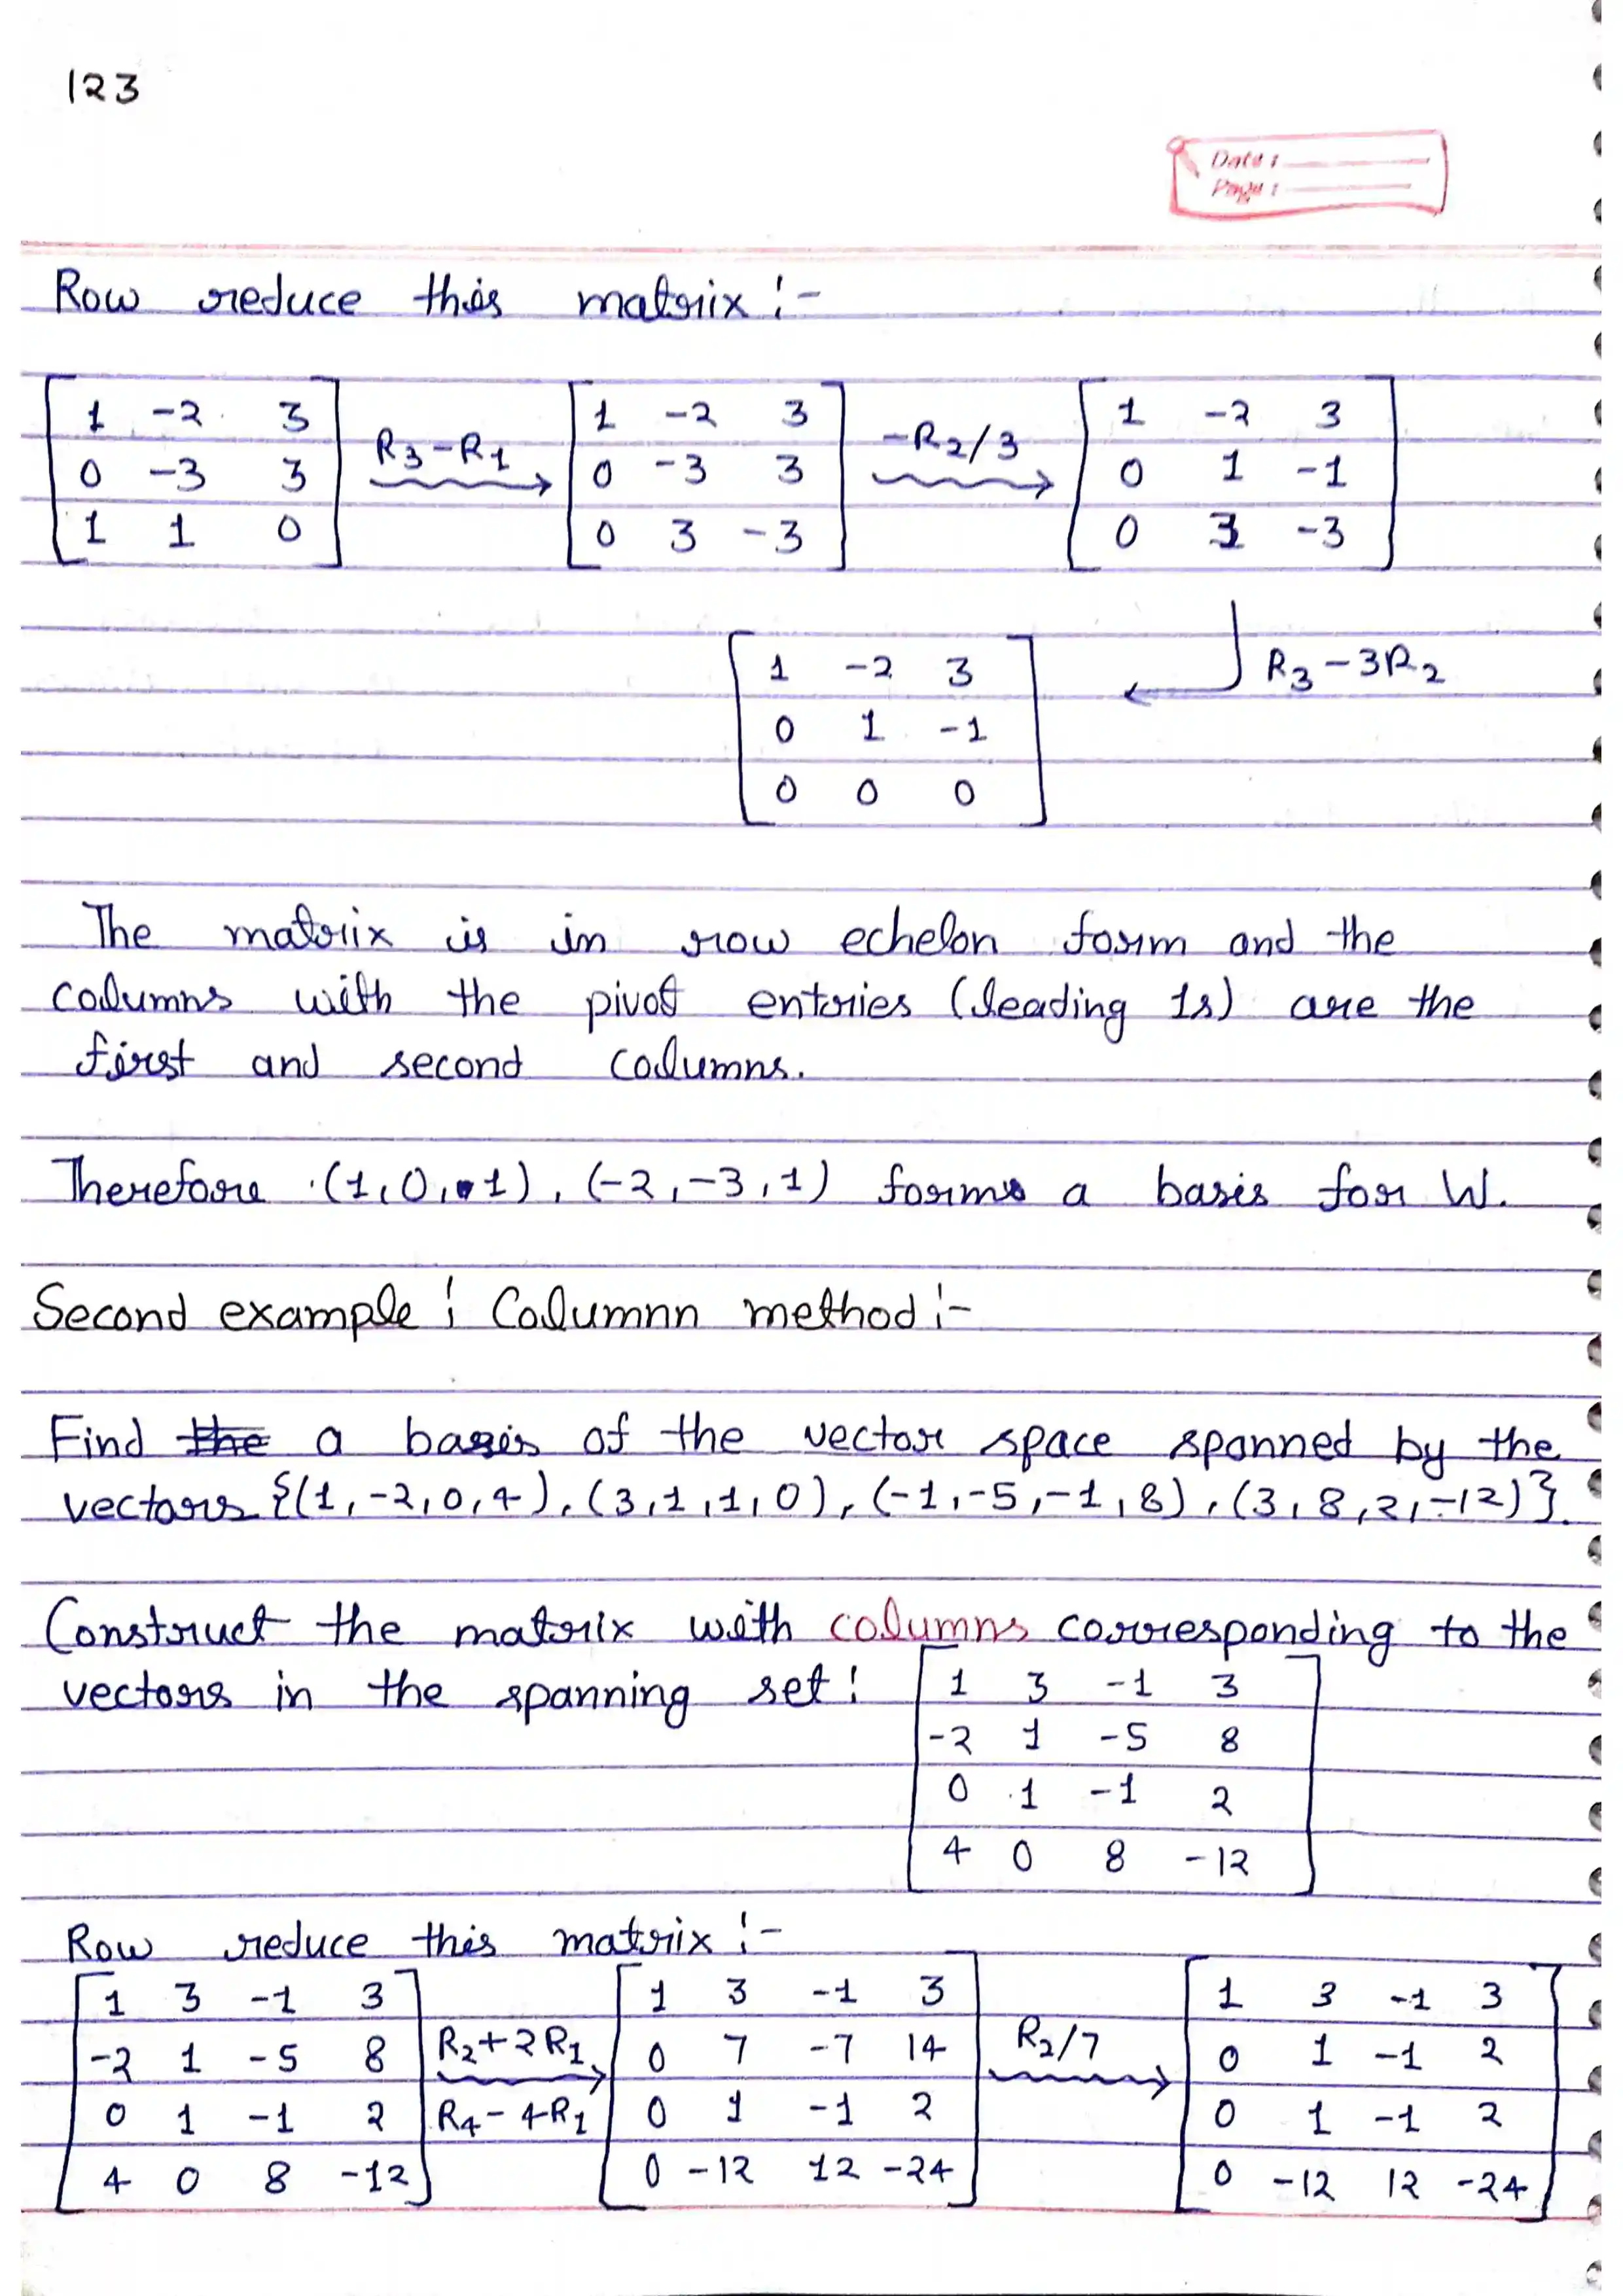 123
Date :
Page :
Row reduce this matrix :-
1 -2 3 1 -2 3 1 -2 3
R3-R1 -R2/3
0 -3 3 0 -3 3 0 1 -1
1 1 0 0 3 -3 0 3 -3
1 -2 3 R3-3R2
0 1 -1
0 0 0
The matrix is in row echelon form and the
columns with the pivot entries (leading 1s) are the
first and second columns.
Therefore (1,0,1), (-2,-3,1) forms a basis for W.
Second example : Columnn method :-
Find the a basis of the vector space spanned by the
vectors {(1,-2,0,4), (3,1,1,0), (-1,-5,-1,8), (3,8,2,-12)}.
Construct the matrix with columns corresponding to the
vectors in the spanning set : 1 3 -1 3
-2 1 -5 8
0 1 -1 2
4 0 8 -12
Row reduce this matrix :-
1 3 -1 3 1 3 -1 3 1 3 -1 3
-2 1 -5 8 R2+2R1 0 7 -7 14 R2/7 0 1 -1 2
0 1 -1 2 R4-4R1 0 1 -1 2 0 1 -1 2
4 0 8 -12 0 -12 12 -24 0 -12 12 -24